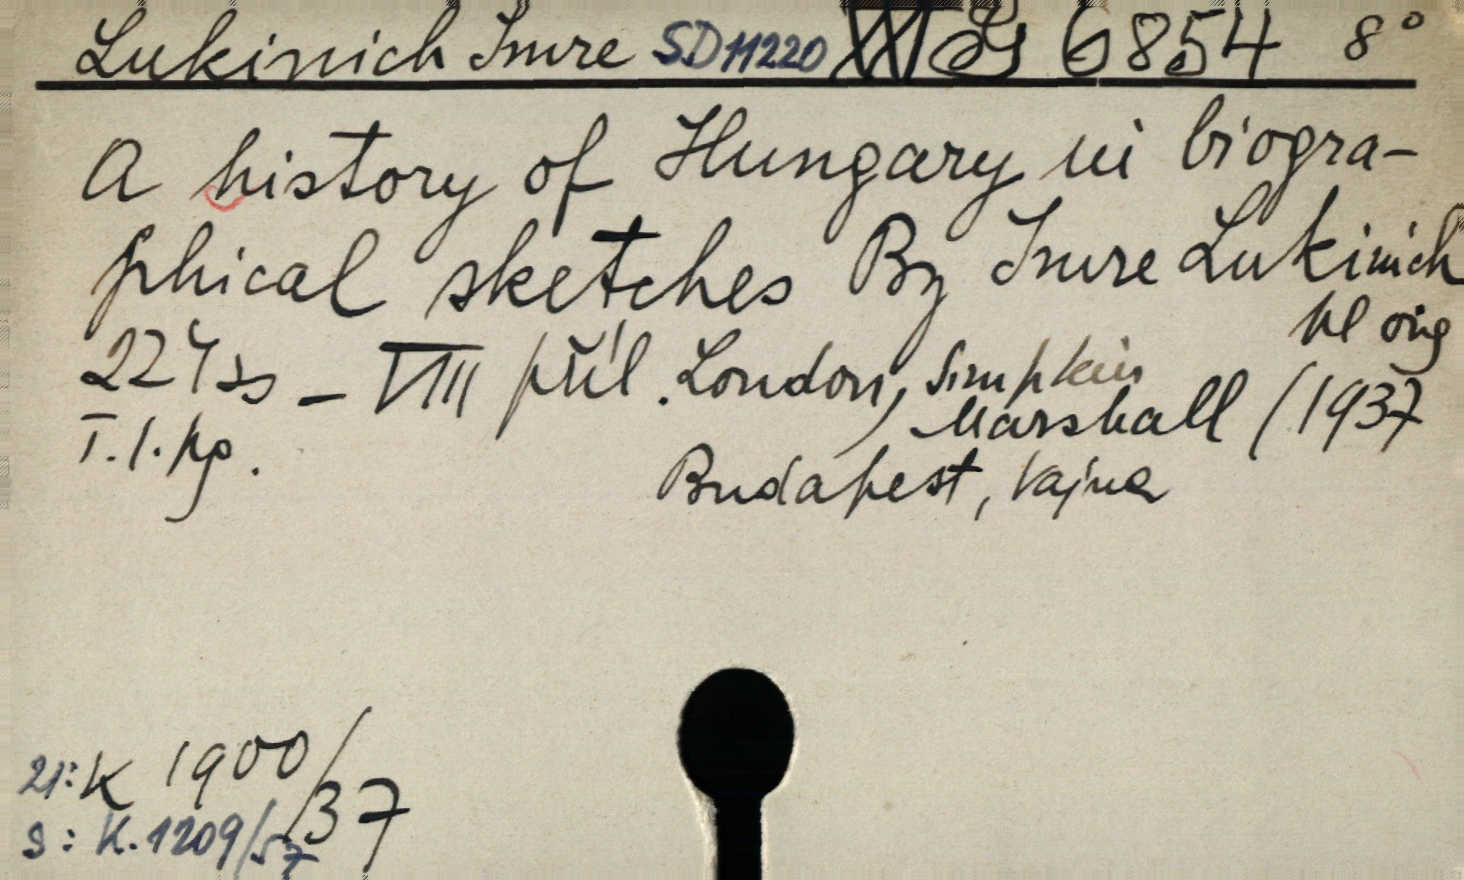 Lukinich Imre SD 11220 6854 8°
A history of Hungary in biogra-
phical sketches By Imre Lukinich
22 ss - VIII příl. London, Simpkin
Marshall (1937
T.1.
Budapest, Vajna
21: K 1900/37
S: K. 1209/57